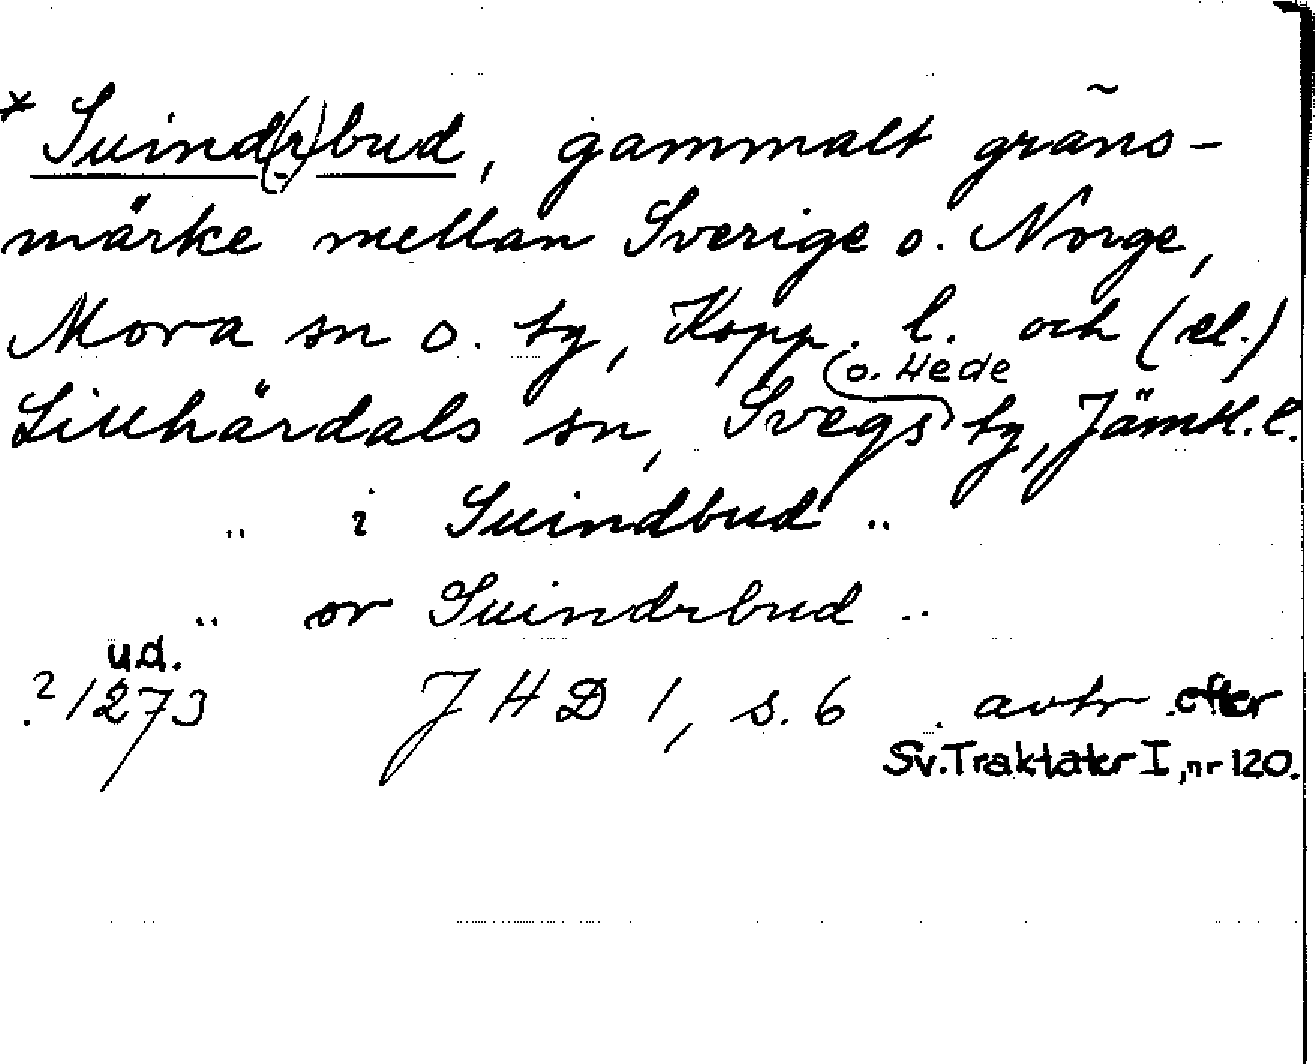 * Suind(r)bud, gammalt gräns-
märke mellan Sverige o. Norge,
Mora sn o. tg, Kopp. l. och (el.)
Lillhärdals sn, Svegs o. Hede tg, Jämtl. l.
" i Suindbud "
" or Suindrbud "
? u.d. 1273 JHD 1, s. 6 avtr efter
Sv. Traktater I, nr 120.